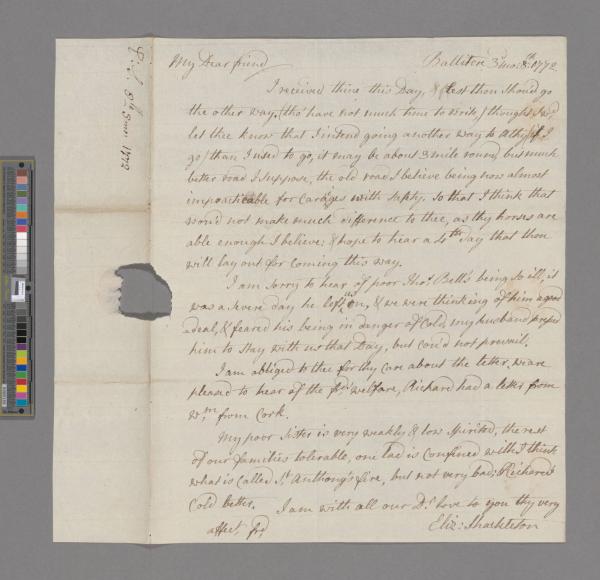 My Dear friend Balliten 3d mo: 8th 1772
I received thine this Day, & lest thou should go
the other way, (tho' have not much time to write) thought I wod
let thee know that I intend going another way to Athy (if I
go) than I used to go, it may be about 3 mile round but much
better road I suppose, the old road I believe being now almost
impracticable for Cariages with safety. so that I think that
wou'd not make much difference to thee, as thy horses are
able enough I believe: & hope to hear a 4th Day that thou
will lay out for coming this way.
I am sorry to hear of poor Thos. Bell's being so ill, it
was a severe day he left us on, & we were thinking of him a good
a deal, & feared his being in danger of Cold, my husband press'd
him to stay with us that Day, but cou'd not prevail.
I am obliged to thee for thy Care about the letter, we are
pleased to hear of the welfare, Richard had a letter from
Wm. from Cork.
My poor Sister is very weakly & low Spirited, the rest
of our families tolerable, one lad is confined with I think
what is called St. Anthony's fire, but not very bad; Richard's
Cold better. I am with all our Dr. love to you thy very
affect. frd.
Eliz: Shackleton
8th 3mo 1772